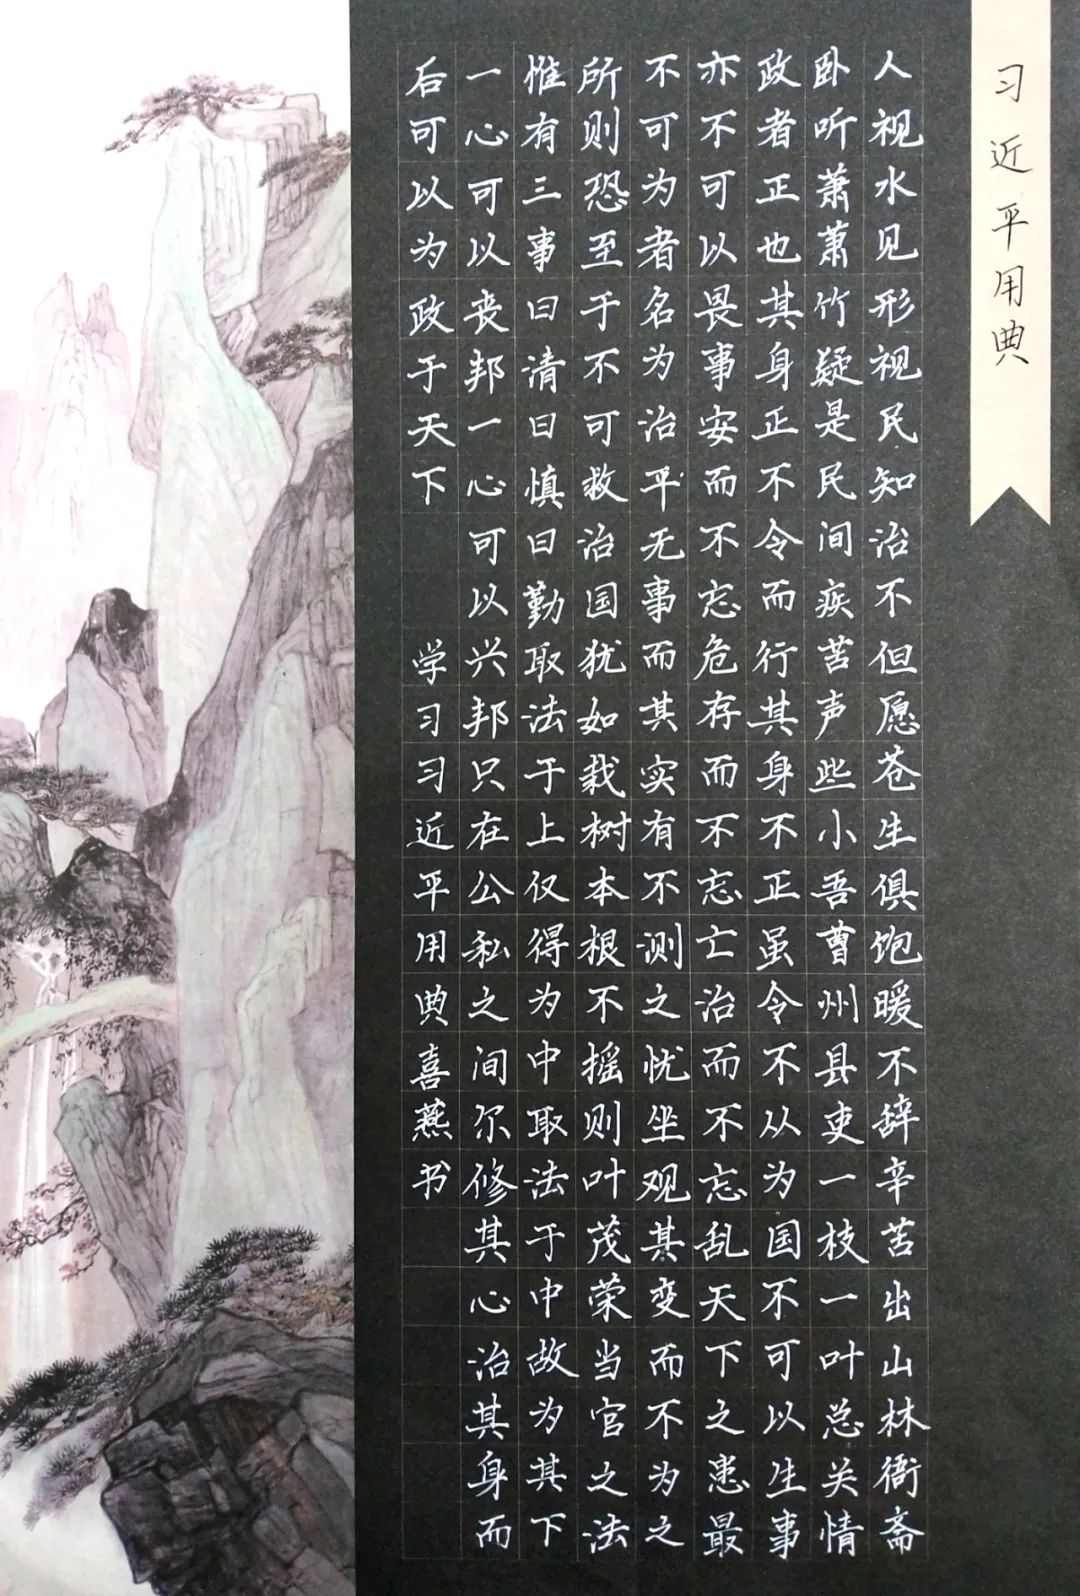 习近平用典
人视水见形视民知治不但愿苍生俱饱暖不辞辛苦出山林衙斋
卧听萧萧竹疑是民间疾苦声些小吾曹州县吏一枝一叶总关情
政者正也其身正不令而行其身不正虽令不从为国不可以生事
亦不可以畏事安而不忘危存而不忘亡治而不忘乱天下之患最
不可为者名为治平无事而其实有不测之忧坐观其变而不为之
所则恐至于不可救治国犹如栽树本根不摇则叶茂荣当官之法
惟有三事曰清曰慎曰勤取法于上仅得为中取法于中故为其下
一心可以丧邦一心可以兴邦只在公私之间尔修其心治其身而
后可以为政于天下 学习习近平用典喜燕书